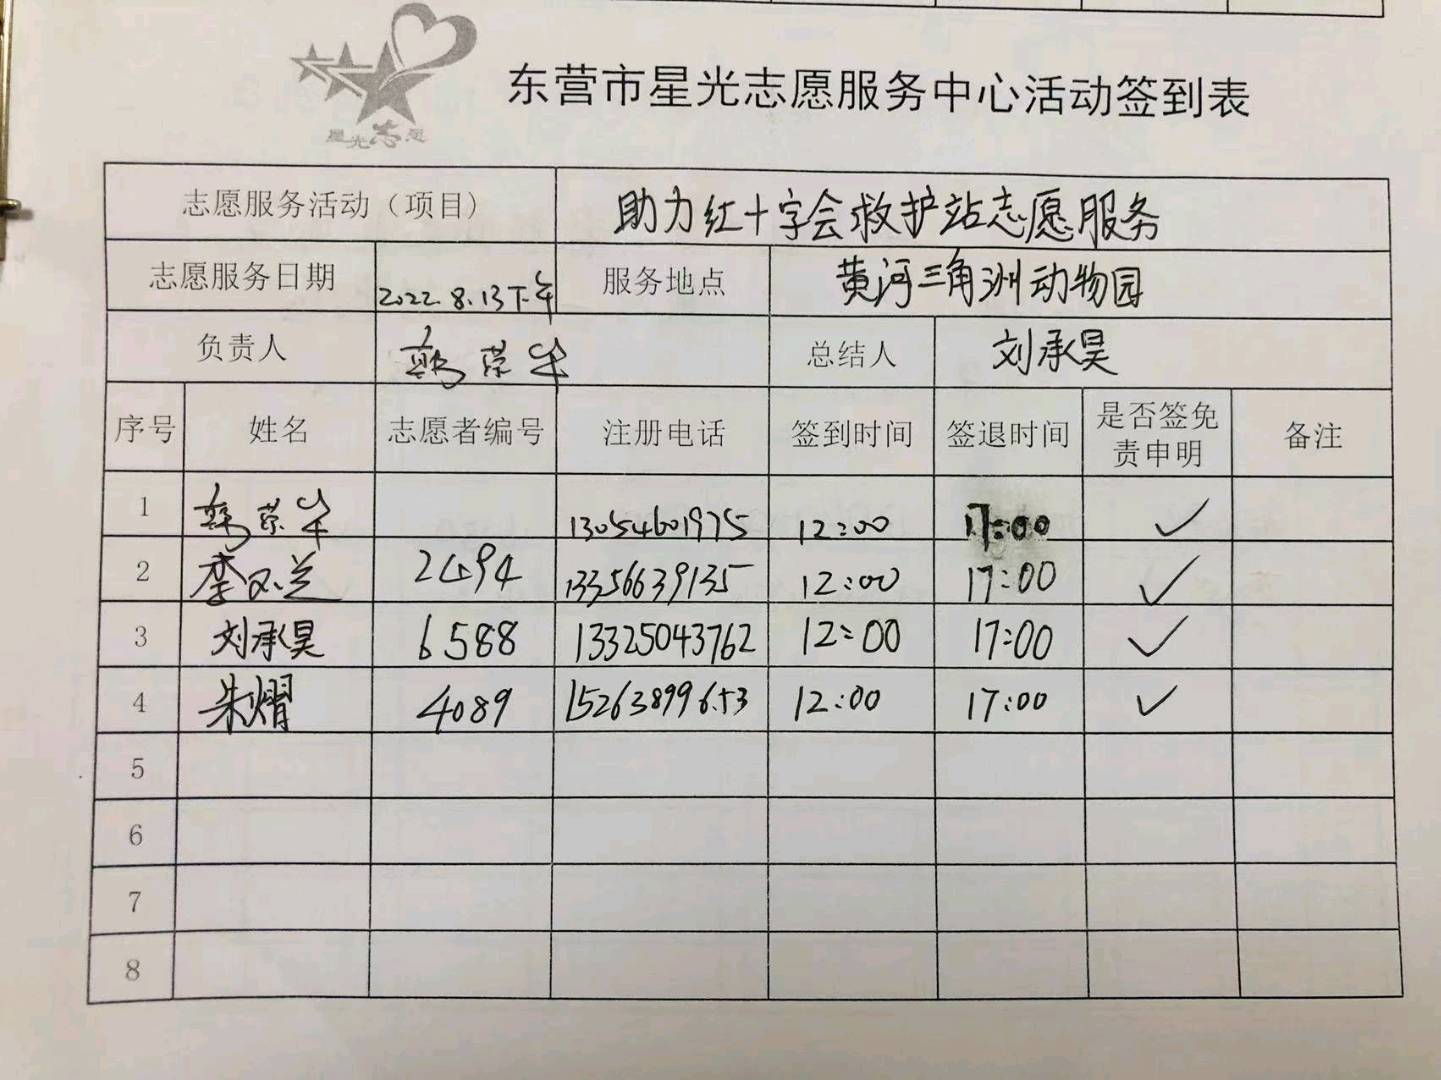 星光志愿
东营市星光志愿服务中心活动签到表
志愿服务活动（项目） 助力红十字会救护站志愿服务
志愿服务日期 2022.8.13下午 服务地点 黄河三角洲动物园
负责人 韩荣华 总结人 刘承昊
序号 姓名 志愿者编号 注册电话 签到时间 签退时间 是否签免责申明 备注
1 韩荣华 13054601975 12:00 17:00 ✓
2 李 兰 2494 13356639135 12:00 17:00 ✓
3 刘承昊 6588 13325043762 12:00 17:00 ✓
4 朱熠 4089 15263899653 12:00 17:00 ✓
5
6
7
8